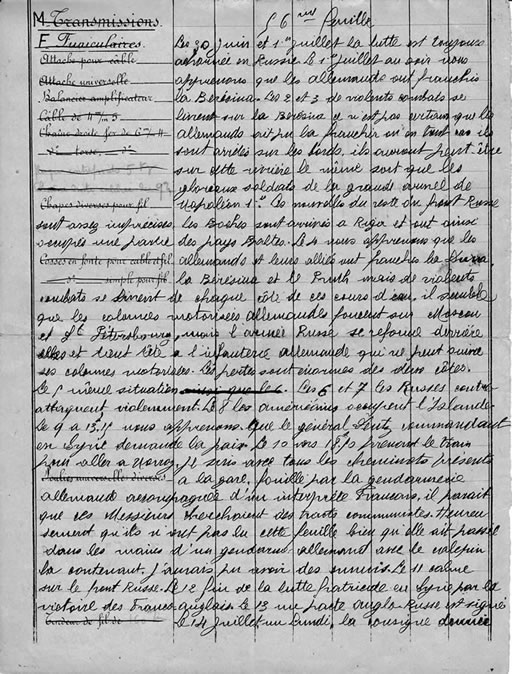 56me feuille
M. Transmissions.
F. Funiculaires.
Attache pour câble
Attache universelle
Balancier amplificateur
Câble de 4 m/m 5
Chaîne droite fer de 6 m/m 4
d° torse d°
Chapes diverses pour fil
Cosses en fonte pour câble et fil
d° simple pour fil
Poulies universelles diverses
Cordeau de fil de
Les 30 juin et 1er juillet la lutte est toujours
acharnée en Russie. Le 1er juillet au soir nous
apprenons que les allemands ont franchis
la Bérésina. Les 2 et 3 de violents combats se
livrent sur la Bérésina et n'est pas certains que les
allemands ait pu la franchir ou en tout cas ils
sont arrêtés sur les bords, ils auront peut être
sur cette rivière le même sort que les
glorieux soldats de la grande armée de
Napoléon 1er. Les nouvelles du reste du front Russe
sont assez imprécises. Les Boches sont arrivés à Riga et ont ainsi
occupés une partie des pays Baltes. Le 4 nous apprenons que les
allemands et leurs alliés ont franchis la
la Bérésina et le Pruth mais de violents
combats se livrent de chaque côté de ces cours d'eau, il semble
que les colonnes motorisées allemandes foncent sur Moscou
et St Pétersbourg, mais l'armée Russe se reforme derrière
elles et tient tête à l'infanterie allemande qui ne peut suivre
ses colonnes motorisées. Les pertes sont énormes des deux côtés.
Le 5 même situation ainsi que le 6. Les 6 et 7 les Russes contre-
attaquent violemment. Le 8 les américains occupent l'Islande.
Le 9 à 13h nous apprenons que le général Dentz, commandant
en Syrie demande la paix. Le 10 vers 18h10 prenant le train
pour aller à je suis avec tous les cheminots présents
à la gare, fouillé par la gendarmerie
allemande accompagnée d'un interprète Français, il parait
que ces Messieurs cherchaient des tracts communistes. Heureu
sement qu'ils n'ont pas lu cette feuille bien qu'elle ait passée
dans les mains d'un gendarme allemand avec le calepin
la contenant. J'aurais pu avoir des ennuis. Le 11 calme
sur le front Russe. Le 12 fin de la lutte fratricide en Syrie par la
victoire des Francs anglais. Le 13 un pacte Anglo-Russe est signé
le 14 Juillet un lundi, la consigne donnée